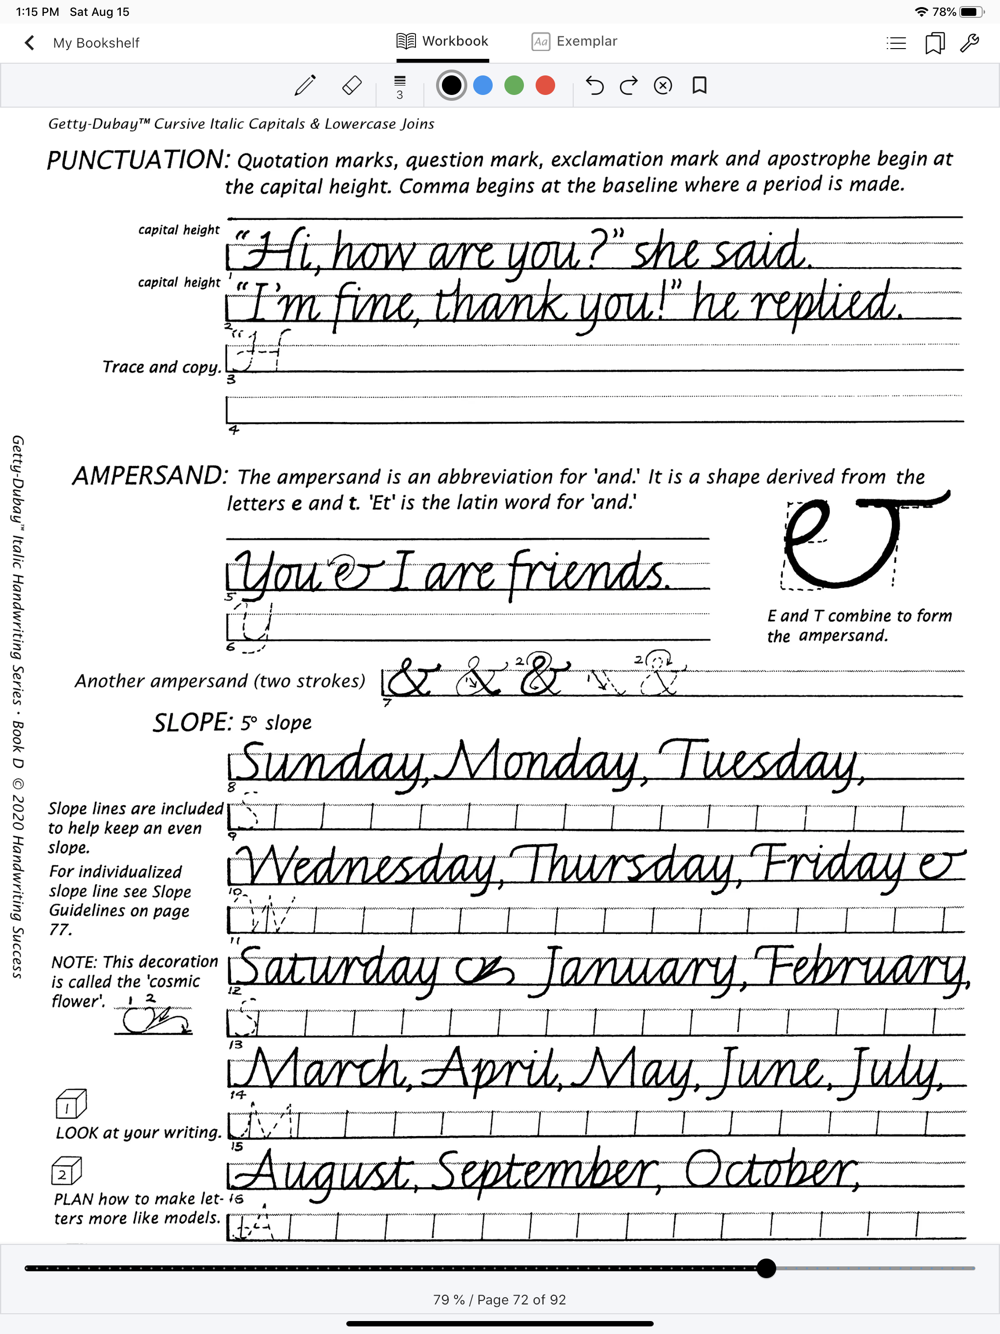 1:15 PM Sat Aug 15 78%
My Bookshelf Workbook Aa Exemplar
3
Getty-Dubay™ Cursive Italic Capitals & Lowercase Joins
PUNCTUATION: Quotation marks, question mark, exclamation mark and apostrophe begin at
the capital height. Comma begins at the baseline where a period is made.
capital height
“Hi, how are you?” she said.
1
capital height
“I’m fine, thank you!” he replied.
2
“H
Trace and copy.
3
4
AMPERSAND: The ampersand is an abbreviation for 'and.' It is a shape derived from the
letters e and t. 'Et' is the latin word for 'and.'
You & I are friends.
5
Y
6
E and T combine to form
the ampersand.
Another ampersand (two strokes) & & 2 & 2 &
7
SLOPE: 5° slope
Sunday, Monday, Tuesday,
8
S
9
Slope lines are included
to help keep an even
slope.
For individualized
slope line see Slope
Guidelines on page
77.
Wednesday, Thursday, Friday &
10
W
11
NOTE: This decoration
is called the 'cosmic
flower'.
1 2
Saturday January, February,
12
S
13
March, April, May, June, July,
14
M
15
1
LOOK at your writing.
August, September, October,
16
A
2
PLAN how to make let-
ters more like models.
Getty-Dubay™ Italic Handwriting Series • Book D © 2020 Handwriting Success
79 % / Page 72 of 92